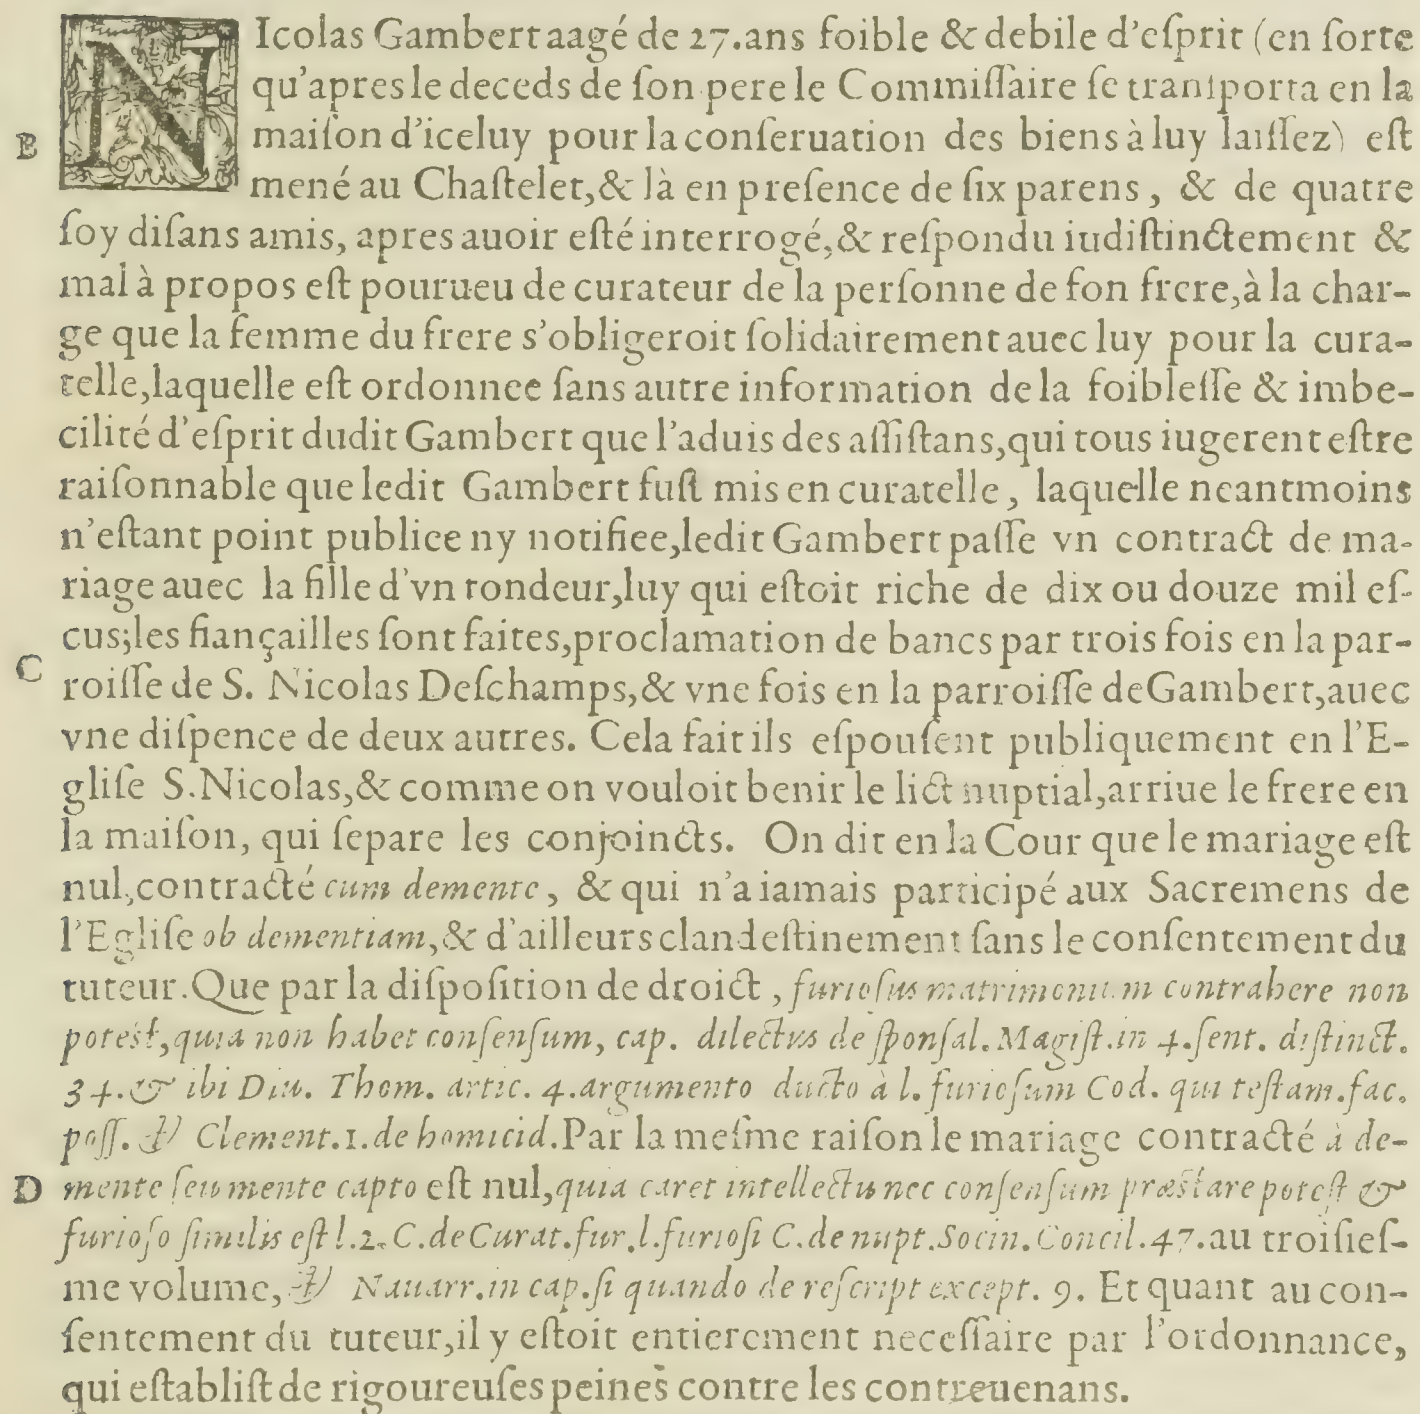 NIcolas Gambert aagé de 27. ans foible & debile d'eſprit (en ſorte
qu'apres le deceds de ſon pere le Commiſſaire ſe tranſporta en la
B maiſon d'iceluy pour la conſeruation des biens à luy laiſſez) eſt
mené au Chaſtelet, & là en preſence de ſix parens, & de quatre
ſoy diſans amis, apres auoir eſté interrogé, & reſpondu iudiſtinctement &
mal à propos eſt pourueu de curateur de la perſonne de ſon frere, à la char-
ge que la femme du frere s'obligeroit ſolidairement auec luy pour la cura-
telle, laquelle eſt ordonnee ſans autre information de la foibleſſe & imbe-
cilité d'eſprit dudit Gambert que l'aduis des aſſiſtans, qui tous iugerent eſtre
raiſonnable que ledit Gambert fuſt mis en curatelle, laquelle neantmoins
n'eſtant point publiee ny notifiee, ledit Gambert paſſe vn contract de ma-
riage auec la fille d'vn tondeur, luy qui eſtoit riche de dix ou douze mil eſ-
cus; les fiançailles ſont faites, proclamation de bancs par trois fois en la par-
C roiſſe de S. Nicolas Deſchamps, & vne fois en la parroiſſe de Gambert, auec
vne diſpence de deux autres. Cela fait ils eſpouſent publiquement en l'E-
gliſe S. Nicolas, & comme on vouloit benir le lict nuptial, arriue le frere en
la maiſon, qui ſepare les conjoincts. On dit en la Cour que le mariage eſt
nul, contracté cum demente, & qui n'a iamais participé aux Sacremens de
l'Egliſe ob dementiam, & d'ailleurs clandeſtinement ſans le conſentement du
tuteur. Que par la diſpoſition de droict, furioſus matrimonium contrahere non
poteſt, quia non habet conſenſum, cap. dilectus de ſponſal. Magiſt. in 4. ſent. diſtinct.
34. & ibi Diu. Thom. artic. 4. argumento ducto à l. furioſum Cod. qui teſtam. fac.
poſſ. & Clement. 1. de homicid. Par la meſme raiſon le mariage contracté à de-
D mente ſeu mente capto eſt nul, quia caret intellectu nec conſenſum præſtare poteſt &
furioſo ſimilis eſt l. 2. C. de Curat. fur. l. furioſi C. de nupt. Socin. Concil. 47. au troiſieſ-
me volume, & Nauarr. in cap. ſi quando de reſcript except. 9. Et quant au con-
ſentement du tuteur, il y eſtoit entierement neceſſaire par l'ordonnance,
qui eſtabliſt de rigoureuſes peines contre les contreuenans.